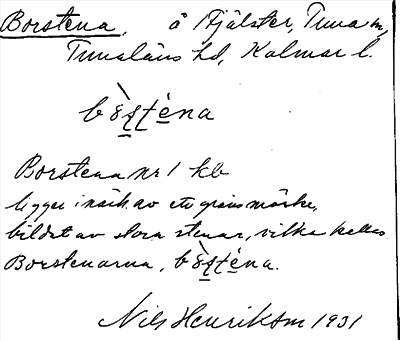 Borstena, å Hjälster, Tuna sn,
Tunaläns hd, Kalmar l.
bòs̱ṯèna
Borstena nr 1 kb
ligger i närh. av ett gränsmärke,
bildat av stora stenar, vilka kallas
Borstenarna, bòs̱ṯèna.
Nils Henriksson 1931